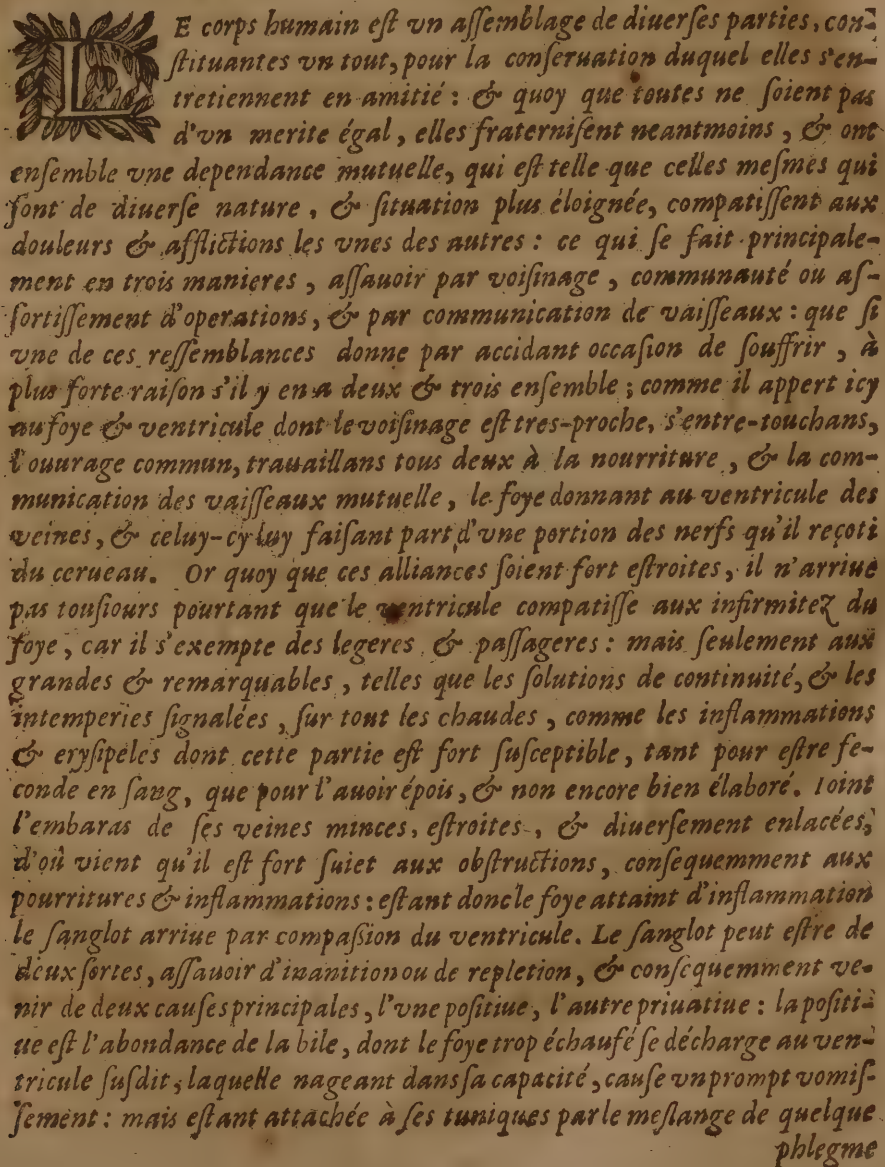 LE corps humain eſt vn aſſemblage de diuerſes parties, con-
ſtituantes vn tout, pour la conſeruation duquel elles s'en-
tretiennent en amitié : & quoy que toutes ne ſoient pas
d'vn merite égal, elles fraterniſent neantmoins, & ont
enſemble vne dependance mutuelle, qui eſt telle que celles meſmes qui
ſont de diuerſe nature, & ſituation plus éloignée, compatiſſent aux
douleurs & afflictions les vnes des autres : ce qui ſe fait principale-
ment en trois manieres, aſſauoir par voiſinage, communauté ou aſ-
ſortiſſement d'operations, & par communication de vaiſſeaux : que ſi
vne de ces reſſemblances donne par accidant occaſion de ſouffrir, à
plus forte raiſon s'il y en a deux & trois enſemble ; comme il appert icy
au foye & ventricule dont le voiſinage eſt tres-proche, s'entre-touchans,
l'ouurage commun, trauaillans tous deux à la nourriture, & la com-
munication des vaiſſeaux mutuelle, le foye donnant au ventricule des
veines, & celuy-cy luy faiſant part d'vne portion des nerfs qu'il reçoti
du cerueau. Or quoy que ces alliances ſoient fort eſtroites, il n'arriue
pas touſiours pourtant que le ventricule compatiſſe aux infirmitez du
foye, car il s'exempte des legeres & paſſageres : mais ſeulement aux
grandes & remarquables, telles que les ſolutions de continuité, & les
intemperies ſignalées, ſur tout les chaudes, comme les inflammations
& eryſipeles dont cette partie eſt fort ſuſceptible, tant pour eſtre fe-
conde en ſang, que pour l'auoir épois, & non encore bien élaboré. Ioint
l'embaras de ſes veines minces, eſtroites, & diuerſement enlacées,
d'où vient qu'il eſt fort ſuiet aux obſtructions, conſequemment aux
pourritures & inflammations : eſtant donc le foye attaint d'inflammation
le ſanglot arriue par compaſſion du ventricule. Le ſanglot peut eſtre de
deux ſortes, aſſauoir d'inanition ou de repletion, & conſequemment ve-
nir de deux cauſes principales, l'vne poſitiue, l'autre priuatiue : la poſiti-
ue eſt l'abondance de la bile, dont le foye trop échaufé ſe décharge au ven-
tricule ſuſdit, laquelle nageant dans ſa capacité, cauſe vn prompt vomiſ-
ſement : mais eſtant attachée à ſes tuniques par le meſlange de quelque
phlegme